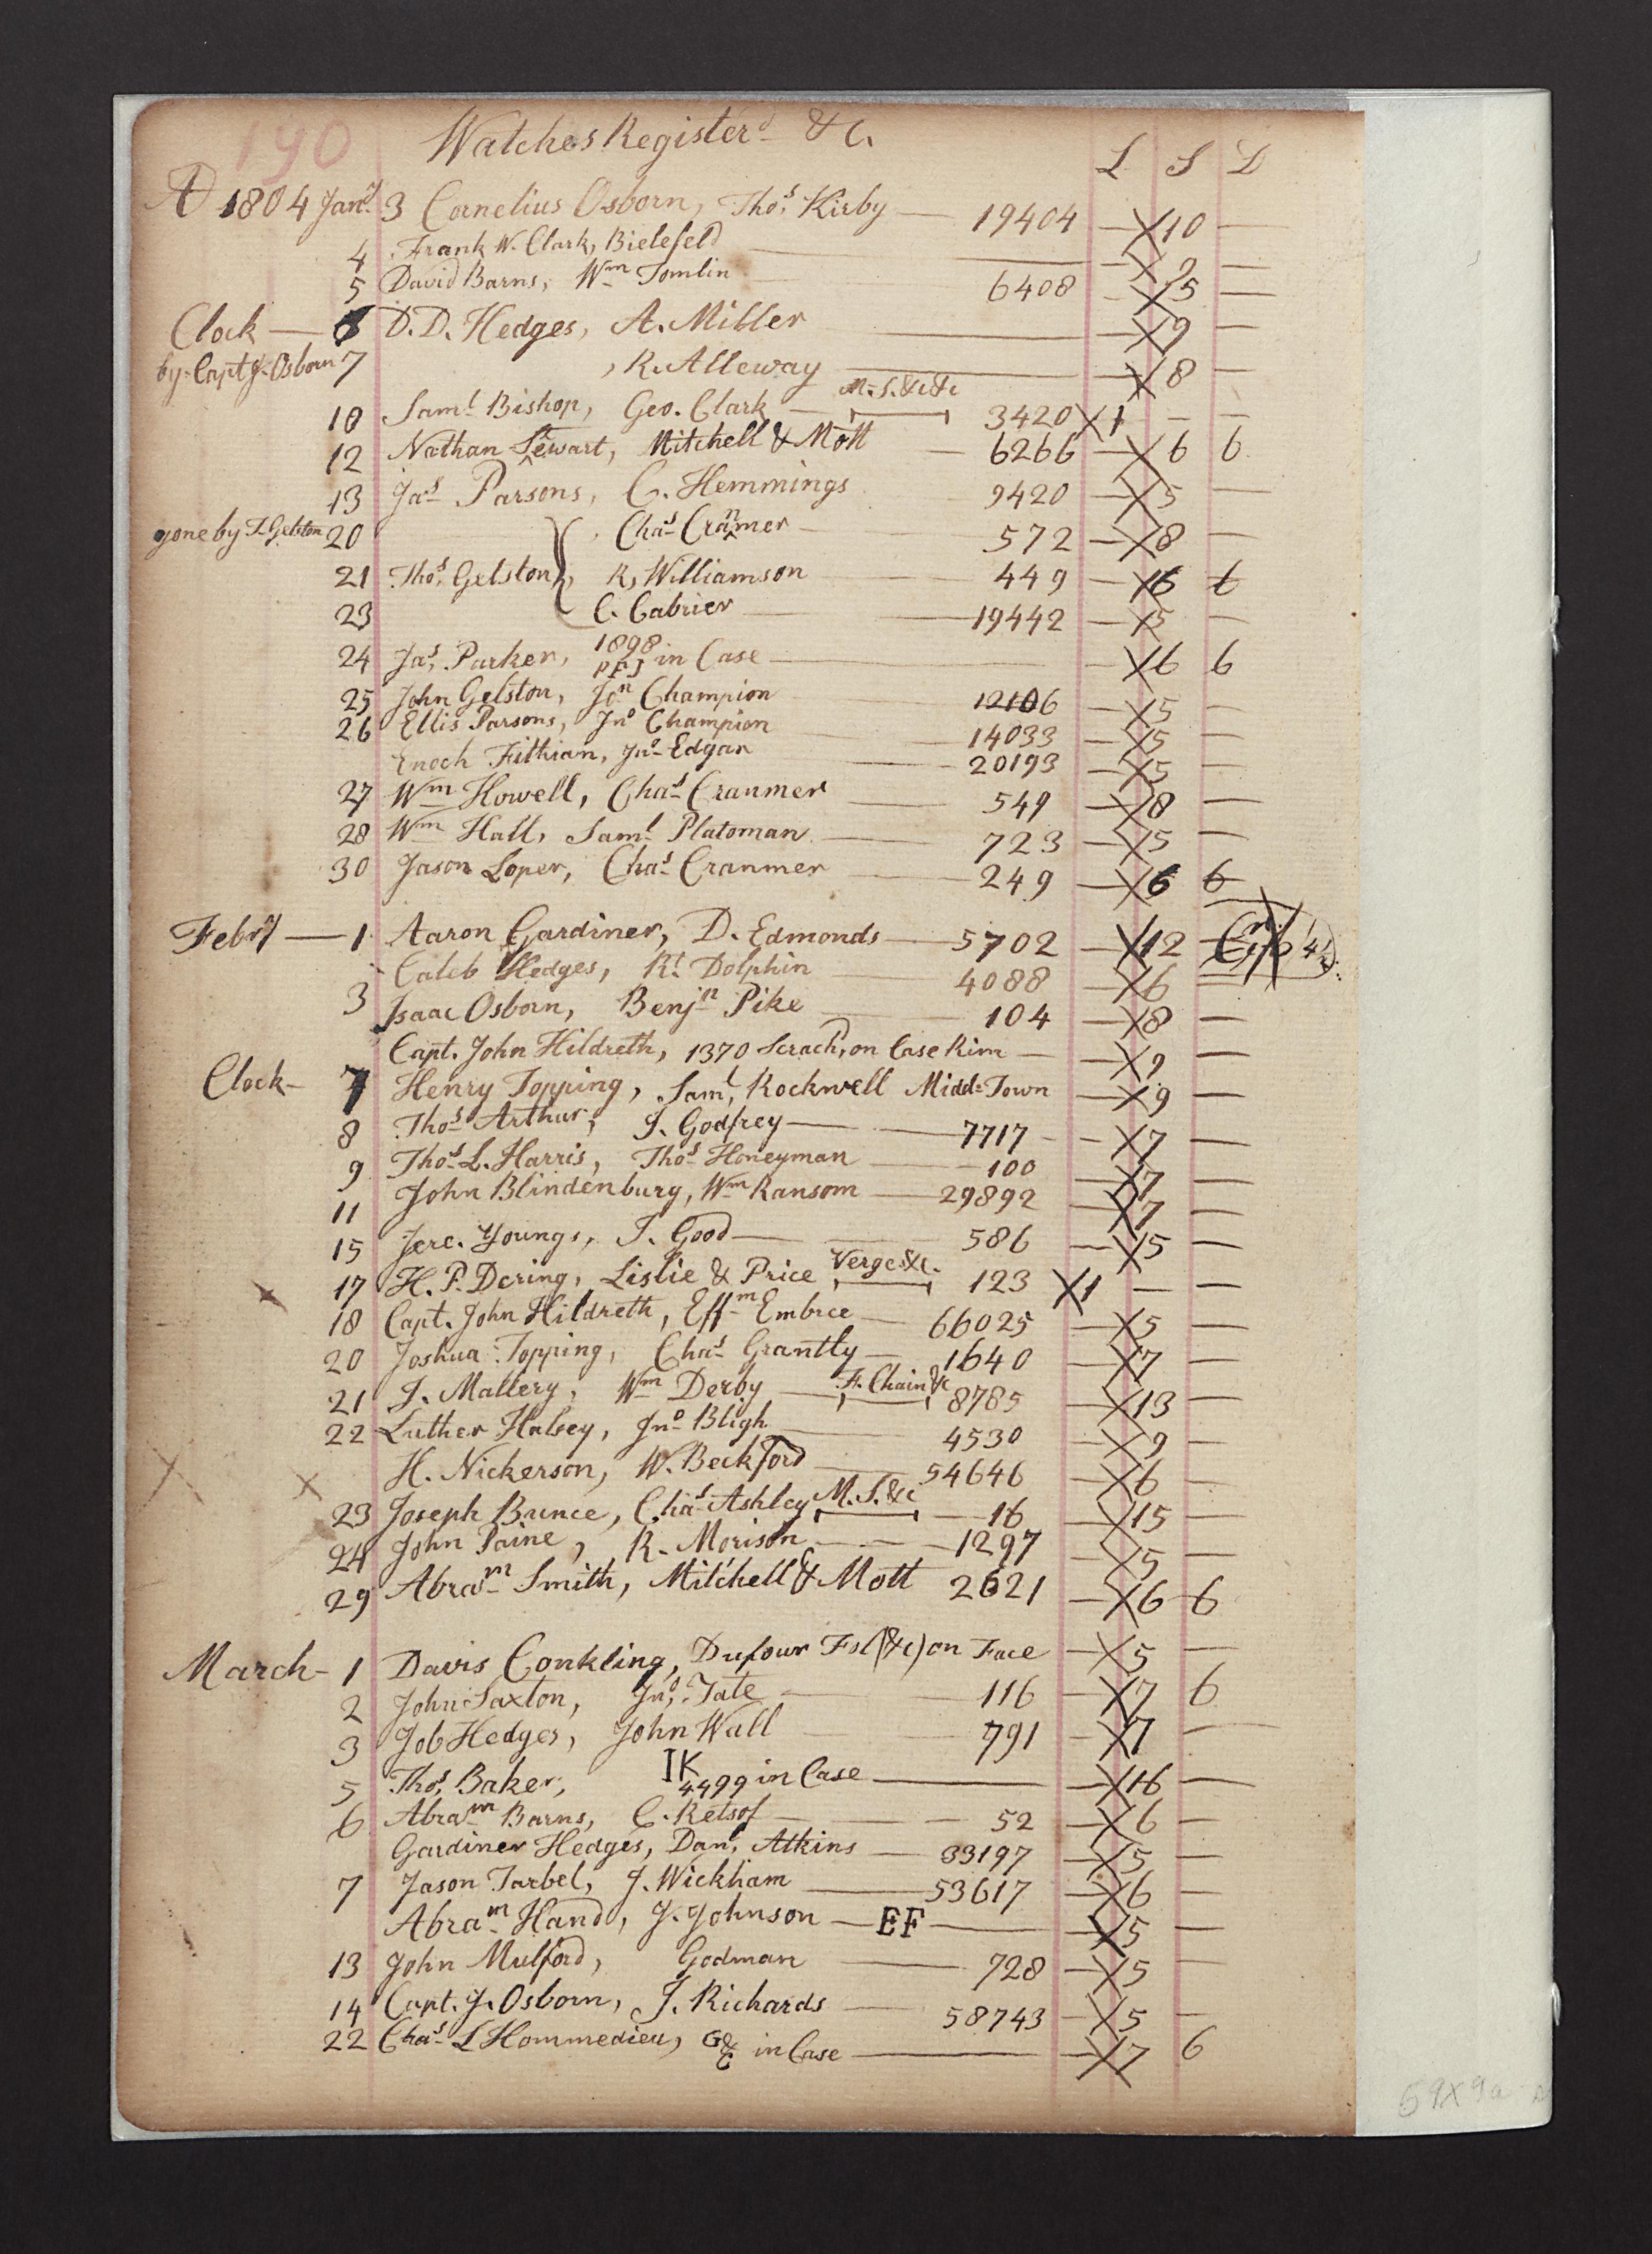 190
Watches Registerd &c.
L S D
AD 1804 Jany 3 Cornelius Osborn, Thos Kirby — 19404 — X 10 —
4 Frank W. Clark, Bielefeld — — X 9 —
5 David Barns, Wm Tomlin — 6408 - X 5 —
Clock — 6 D.D. Hedges, A. Miller — — X 9 —
by Capt J. Osborn 7 , R. Alleway — — X 8 —
M. S. &c &c
10 Saml Bishop, Geo. Clark — 3420 X 1 — —
12 Nathan Stewart, Mitchell & Mott — 6266 — X 6 6
13 Jas Parsons, C. Hemmings 9420 — X 5 —
gone by T. Gelston 20 Chas Cranmer — 572 — X 8 —
21 Thos Gelston, R, Williamson — 449 — X 6 6
23 C. Cabrier — 19442 — X 5 —
24 Jas Parker, 1898 in Case — - X 6 6
25 John Gelston, Jon Champion 12106 — X 5 —
26 Ellis Parsons, Jno Champion — 14033 — X 5 —
Enoch Fithian, Jno Edgar — 20193 — X 5 —
27 Wm Howell, Chas Cranmer — 549 — X 8 —
28 Wm Hall, Saml Platoman — 723 — X 5 —
30 Jason Loper, Chas Cranmer — 249 — X 6 6
Febry — 1 Aaron Gardiner, D. Edmonds — 5702 — X 12
Caleb Hedges, Rt Dolphin — 4088 — X 6
3 Isaac Osborn, Benjn Pike — 104 — X 8 —
Capt. John Hildreth, 1370 Scrachd on Case Rim — — X 9 —
Clock — 7 Henry Topping, Saml Rockwell Midd=Town — X 9 —
8 Thos Arthur, J. Godfrey — 7717 - - X 7 —
9 Thos L. Harris, Thos Honeyman — 100 — X 7 —
11 John Blindenburg, Wm Ransom — 29892 — X 7 —
15 Jere. Youngs, J. Good — 586 — X 5 —
Verge &c.
17 H. P. Dering, Lislie & Price 123 X 1 — —
18 Capt. John Hildreth, Effm Embree — 66025 — X 5 —
20 Joshua Topping, Chas Grantly — 1640 — X 7 —
F. Chain &c
21 J. Mallery, Wm Derby — 8785 — X 13 —
22 Luther Halsey, Jno Bligh — 4530 — X 9 —
X X H. Nickerson, W. Beckford — 54646 — X 6 —
23 Joseph Bunce, Chas Ashley M. S. &c — 16 — X 15 —
24 John Paine, R. Morison — 1297 — X 5 —
29 Abram Smith, Mitchell & Mott 2621 — X 6 6
March — 1 Davis Conkling, Dufour Fs (&c) on Face — X 5 —
2 John Saxton, Jno, Tate — 116 — X 7 6
3 Job Hedges, John Wall — 791 — X 7 —
5 Thos, Baker, IK 4499 in Case — — X 16 —
6 Abram Barns, C. Retsof — 52 — X 6 —
Gardiner Hedges, Danl, Atkins — 33197 — X 5 —
7 Jason Tarbel, J. Wickham — 53617 — X 6 —
Abram Hand, J. Johnson — EF — — X 5 —
13 John Mulford, Godman — 728 — X 5 —
14 Capt. J. Osborn, J. Richards — 58743 — X 5 —
22 Chas L Hommedieu, G& in Case — — X 7 6